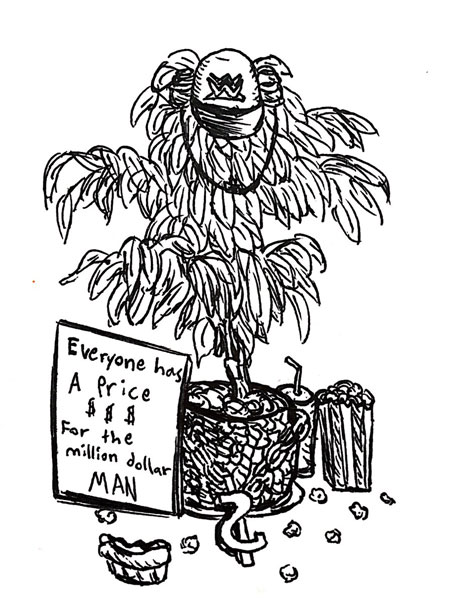 W
Everyone has
A Price
$ $ $
For the
million dollar
MAN